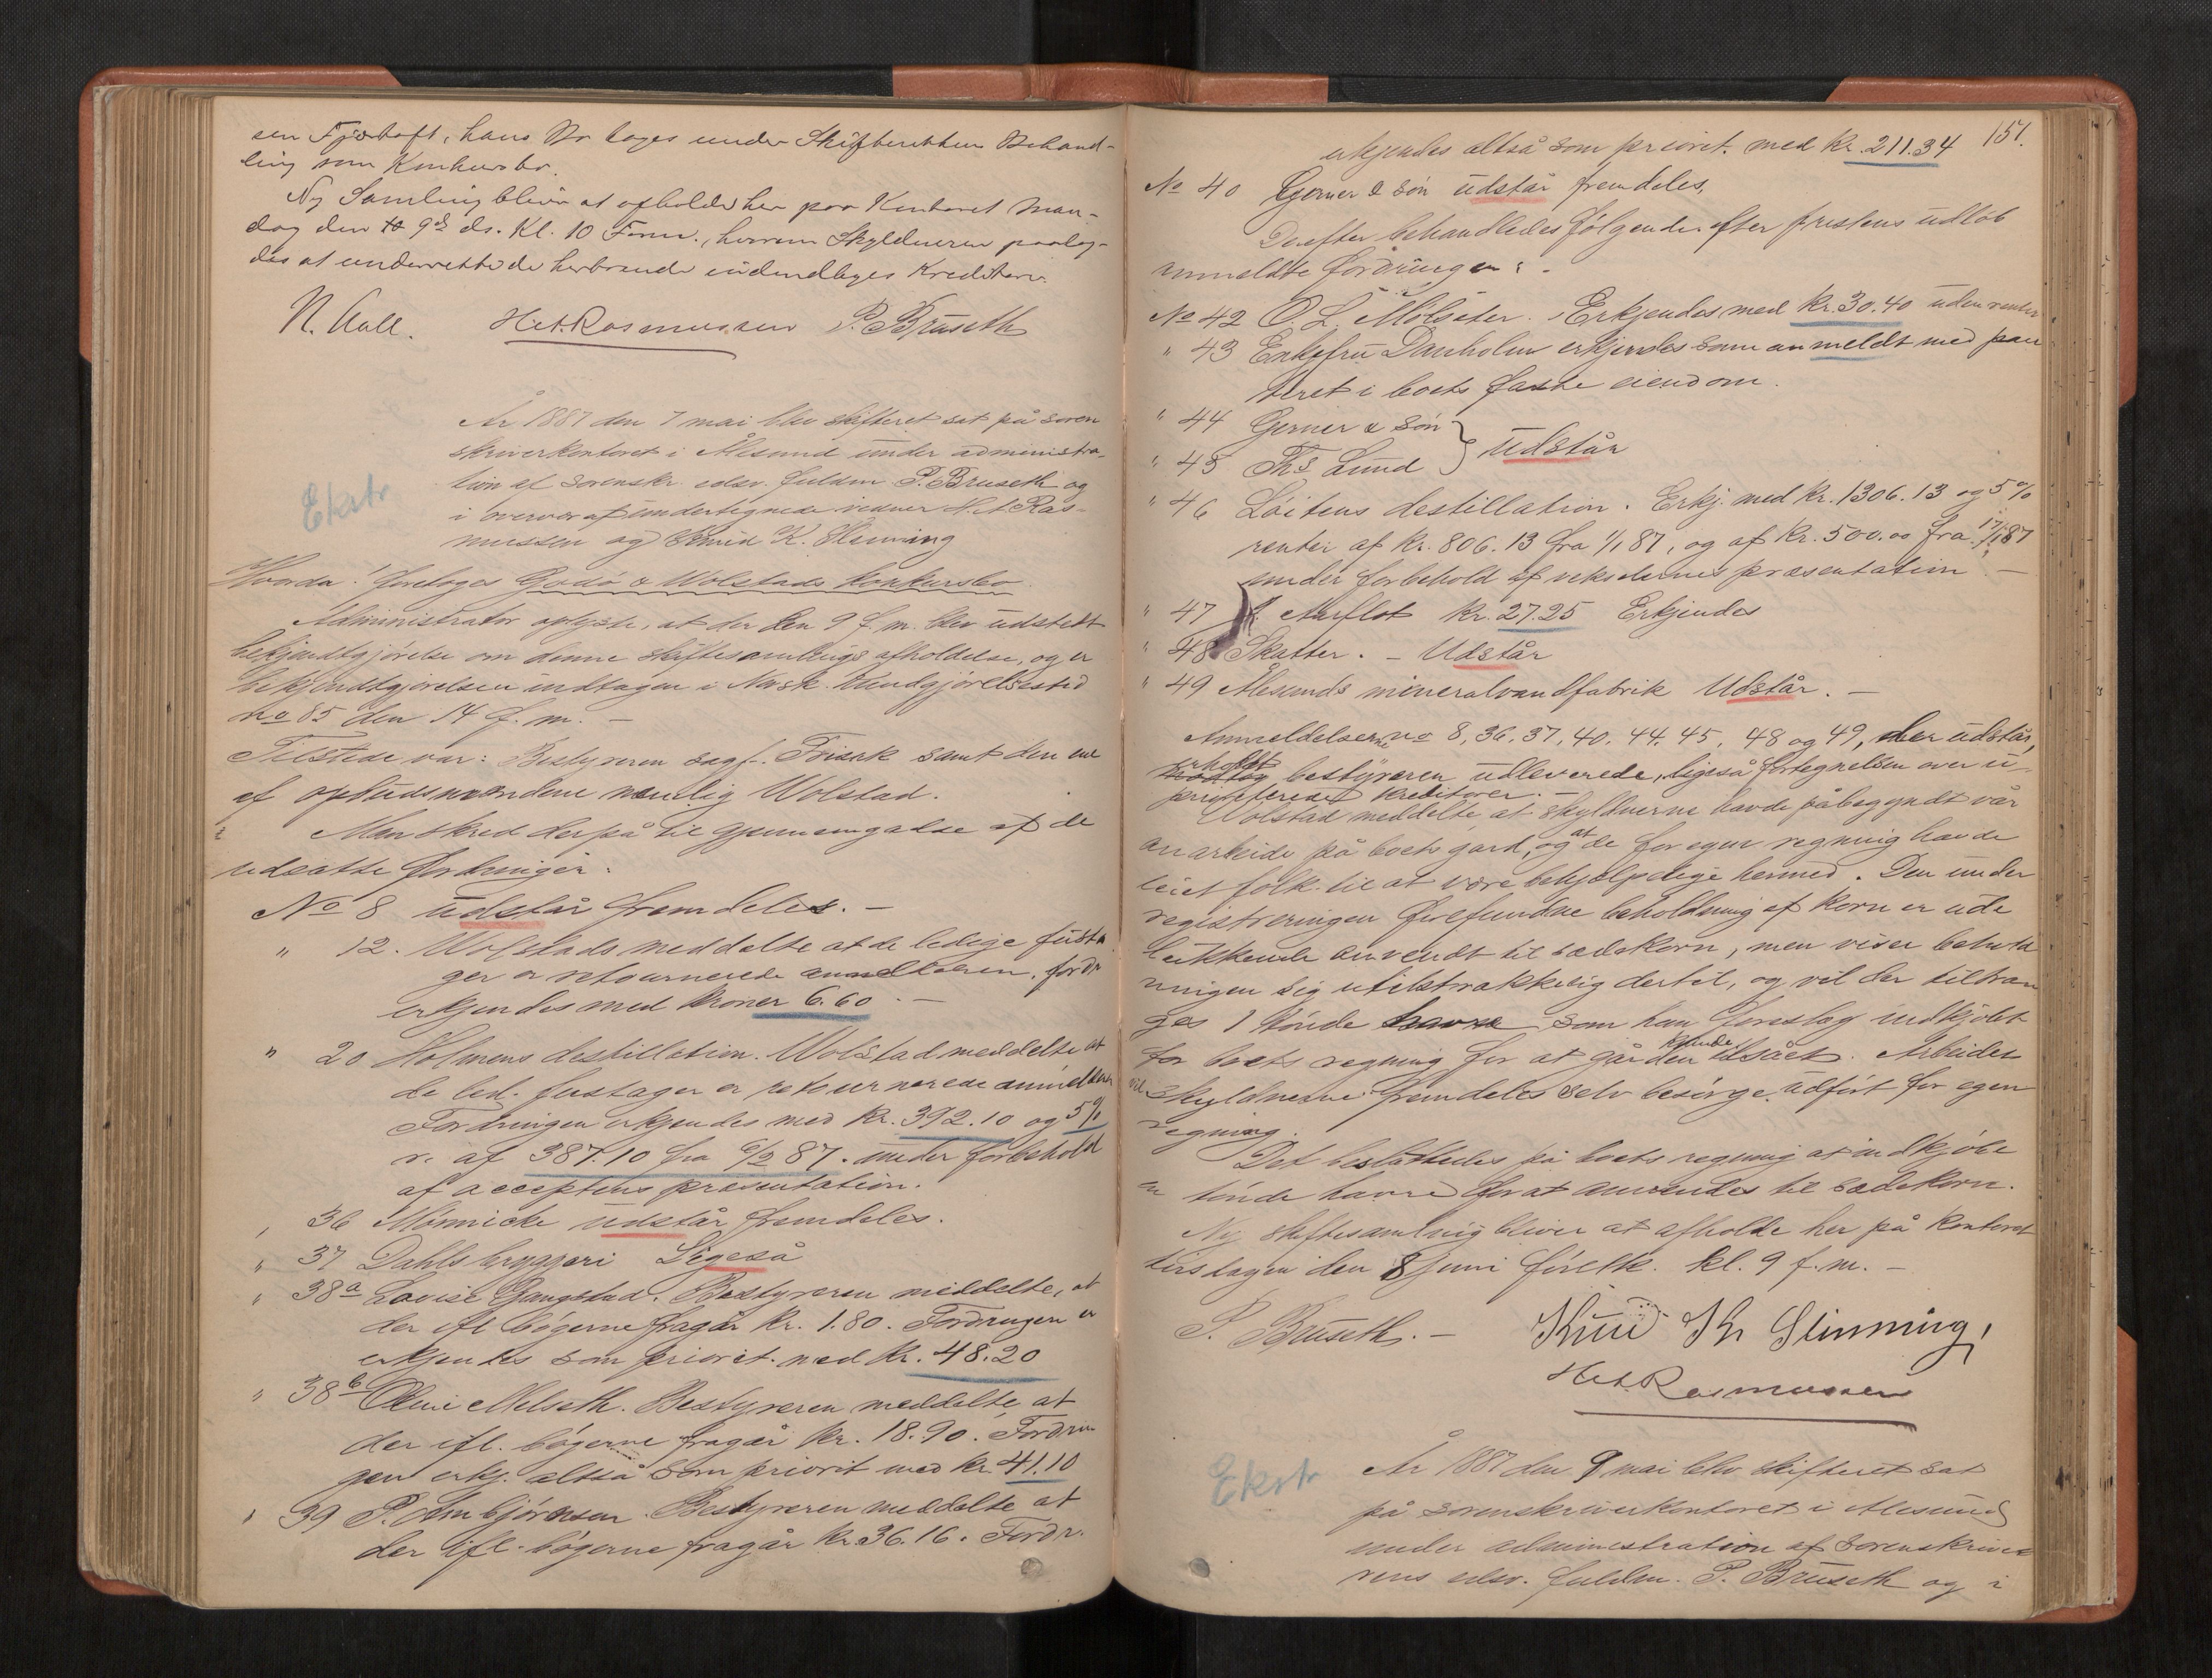 sen Fjørtoft, hans Bo toges under Skifterettens Behand-
ling som Konkursbo.
Ny Samling bliver at afholde her paa Kontoret Man-
dag den 9de ds. Kl. 10 Form., hvorom Skyldneren paalag-
des at underrette de herboende indenbyes Kreditorer.
N. Aall. H.A. Rasmussen P. Bruseth
År 1887 den 7 mai blev skifteret sat på soren
skriverkontoret i Ålesund under administra-
tion af sorenskr. edsv. fuldm P. Bruseth og
i overvær af undertegnede vidner H. A Ras-
mussen og Knud K. Slinning
Ekstr
Hvorda: foretoges Godø & Wolstads konkursbo
Administrator oplyste, at der den 9 f. m. blev udstedt
bekjendtgjørelse om denne skiftesamlings afholdelse, og er
bekjendtgjørelsen indtagen i Norsk Kundgjørelsestid
no 85 den 14 f. m. –
Tilstede var: Bestyreren sagf. Frisak samt den ene
af opbudsmændene nemlig Wolstad.
Man skred derpå til gjennemgåelse af de
udsatte fordringer:
No 8 udstår fremdeles. –
" 12. Wolstad meddelte at de ledige fusta
ger er retournerede anmelderen, fordr
erkjendes med kroner 6.60. –
" 20 Holmens destillation. Wolstad meddelte at
de led. fustager er retournerede anmelderen
Fordringen erkjendes med kr. 392.10 og 5%
r. af 387.10 fra 6/2 87. under forbehold
af acceptens præsentation.
" 36 Mønnicke udstår fremdeles.
" 37 Dahls bryggeri Ligeså
" 38a Lovise Gangstad. Bestyreren meddelte, at
der ifl bøgerne fragår kr. 1.80. Fordringen er
erkjendes som priorit. med kr. 48.20
" 38b Oline Melseth. Bestyreren meddelte at
der ifl. bøgerne fragår kr. 18.90. Fordrin
gen erkj. altså som priorit med kr. 41.10
" 39 P. Bestyreren meddelte at
der ifl. bøgerne fragår kr. 36.16. Fordr.
151.
erkjendes altså som priorit. med kr. 211.34
No 40 Gerner & Søn udstår fremdeles.
Derefter behandledes følgende efter fristens udløb
anmeldte fordringer: –
No 42 O. L. Molsæter. Erkjendes med kr. 30.40 uden renter
" 43 Enkefru Danholm erkjendes som anmeldt med pan
teret i boets faste eiendom.
" 44 Gerner & Søn } Udstår
" 45 Ths Lund
" 46 Løitens destillation. Erkj. med kr. 1306.13 og 5%
renter af kr. 806.13 fra 1/1 87, og af kr. 500.00 fra 17/1 87
under forbehold af vekslernes præsentation. –
" 47 Aarflot kr. 27.25 Erkjendes
" 48 Skatter. – Udstår
" 49 Ålesunds mineralvandfabrik Udstår. –
Anmeldelserne no 8, 36. 37, 40. 44. 45. 48 og 49, der udstår,
erholdt bestyreren udleverede, ligeså fortegnelsen over u-
prioriterede kreditorer. –
Wolstad meddelte at skyldnerne havde påbegyndt vår
onarbeide på boets gård, og at de for egen regning havde
leiet folk til at være behjælpelige hermed. Den under
registreringen forefundne beholdning af korn er ude
lukkende anvendt til sædekorn, men viser beholdt
ningen sig utilstrækkelig dertil, og vil der tiltræn
ges 1 tønde havre som han foreslog indkjøbt
for boets regning for at gården kunde tilsåes. Arbeidet
vil skyldnerne fremdeles selv besørge udført for egen
regning.
Det besluttedes på boets regning at indkjøbe
en tønde havre for at anvendes til sædekorn.
Ny skiftesamling bliver at afholde her på kontoret
tirsdagen den 8 juni førstk. kl. 9 f. m. –
P. Bruseth. – Knud Kr Slinning,
H.A. Rasmussen
Ekstr
År 1887 den 9 mai blev skifteret sat
på sorenskriverkontoret i Ålesund
under administration af sorenskrive
rens edsv. fuldm. P. Bruseth og i